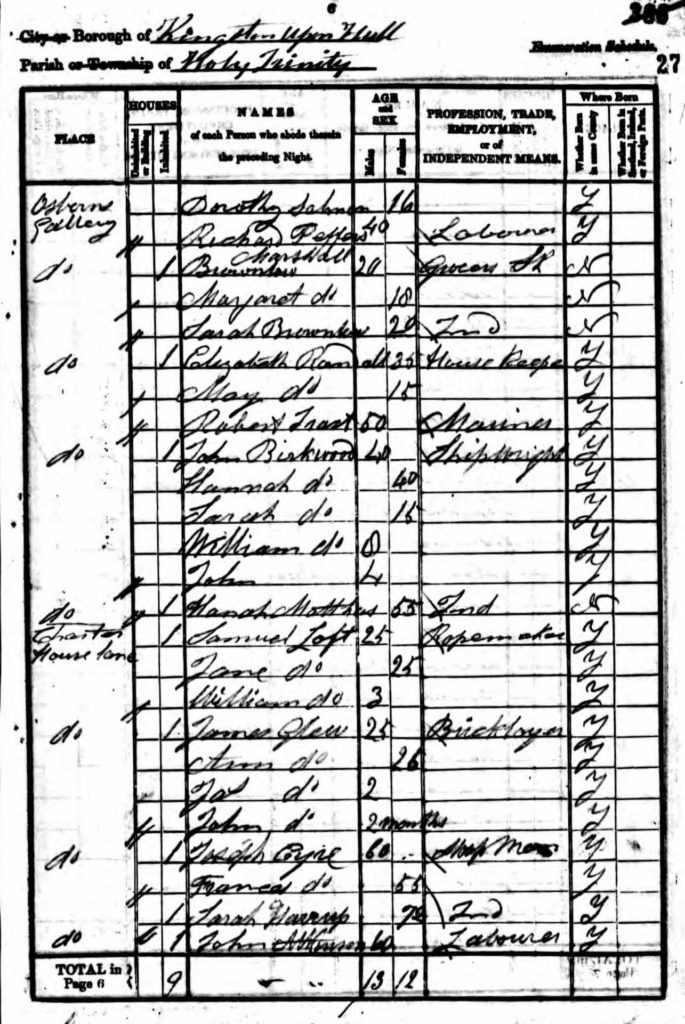 6
City or Borough of Kingston Upon Hull
Enumeration Schedule.
Parish or Township of Holy Trinity
27
PLACE HOUSES NAMES of each Person who abode therein the preceding Night. AGE and SEX PROFESSION, TRADE, EMPLOYMENT, or of INDEPENDENT MEANS. Where Born
Uninhabited or Building Inhabited Males Females Whether Born in same County Whether Born in Scotland, Ireland, or Foreign Parts.
Osborne Dorothy Salmon 16 Y
Gallery Richard Peffers 40 Labourer Y
do 1 Brownlow Marshall 20 Grocers Sh N
Margaret do 18 N
Sarah Brownlow 20 Ind N
do 1 Elizabeth Randall 35 House Keeper Y
May do 15 Y
Robert Trast 50 Mariner Y
do 1 John Birkwood 40 Shipwright Y
Hannah do 40 Y
Sarah do 15 Y
William do 8 Y
John 4 Y
do 1 Hanah Matthus 55 Ind N
Charter 1 Samuel Loft 25 Ropemaker Y
House Lane Jane do 25 Y
William do 3 Y
do 1 James Glew 25 Bricklayer Y
Ann do 26 Y
Jas do 2 Y
John do 2 months Y
do 1 Joseph Eyre 60 Y
Frances do 55 Y
1 Sarah Harrup Ind Y
do 1 John Atkinson 60 Labourer Y
TOTAL in Page 6 9 13 12